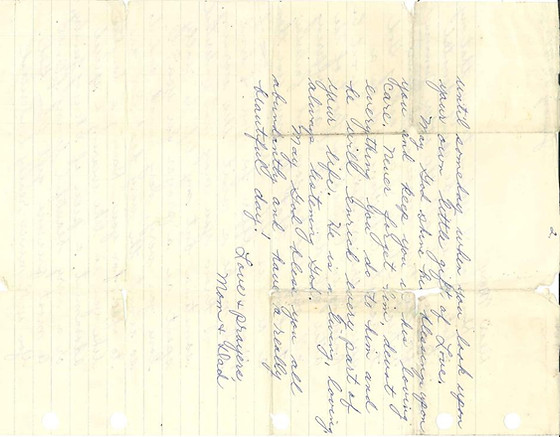 2
until someday when you look upon
your own little gift of Love.
May God shine his blessing upon
you and keep you in his loving
care. Never forget him, devote
everything you do to him and
he will enrich every part of
your life. He is a living, loving,
always listening God.
May God bless you all
abundantly and have a really
beautiful day!
Love & prayers,
Mom & Dad